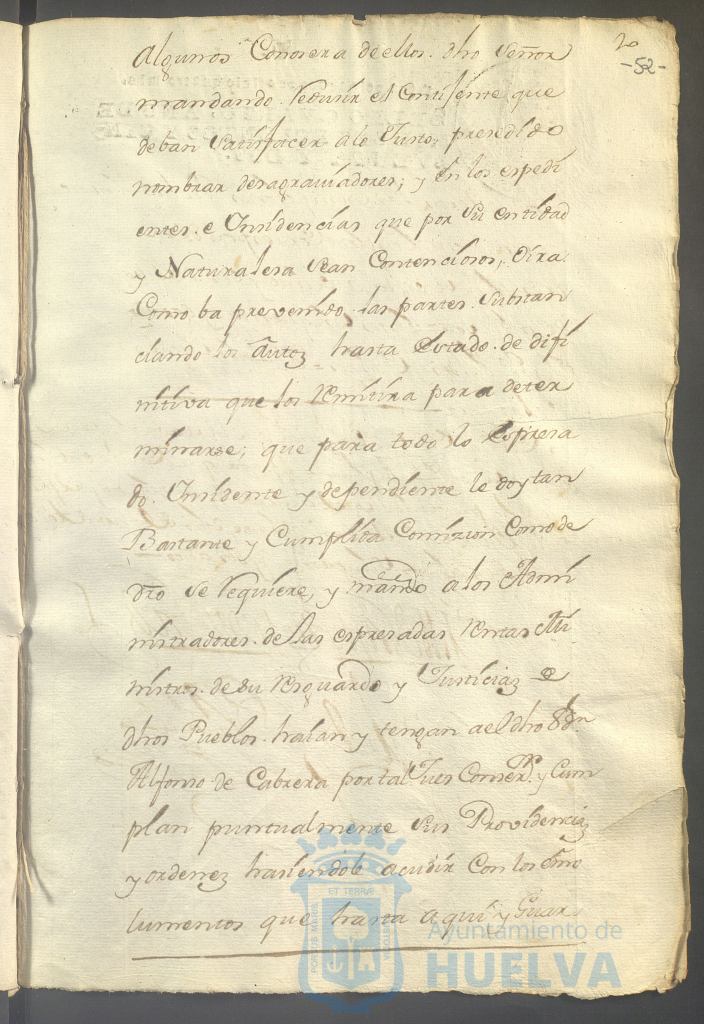 2o
-52-
algunos Conosera de ellos dho señor
mandando Reducir el Contijente que
deban satisfacer a lo Justo, presedido
nombrar desagraviadores; y en los espedi
entes e Insidencias que por su entidad
y Naturalesa sean Contenciosos, Oira
Como ba prevenido las partes substan
ciando los autoz hasta Estado de difi
nitiva que los Remitira para deter
minarse; que para todo lo Espresa
do Insidente y dependiente le doy tan
Bastante y Cumplida Comizion Como de
dro se Requiere, y mando a los Admi
nistradores de las espresadas Rentas Mi
nistros de su Resguardo y Justiciaz de
dhos Pueblos haian y tengan a el dho Sr Dn
Alfonso de Cabrera por tal Jues Conser.r y Cum
plan puntualmente sus Providenciaz
y ordenez hasiendole acudir Con los emo
lumentos que hasta aqui y Guar
PORTUS MARIS ET TERRÆ CUSTODIA
Ayuntamiento de
HUELVA